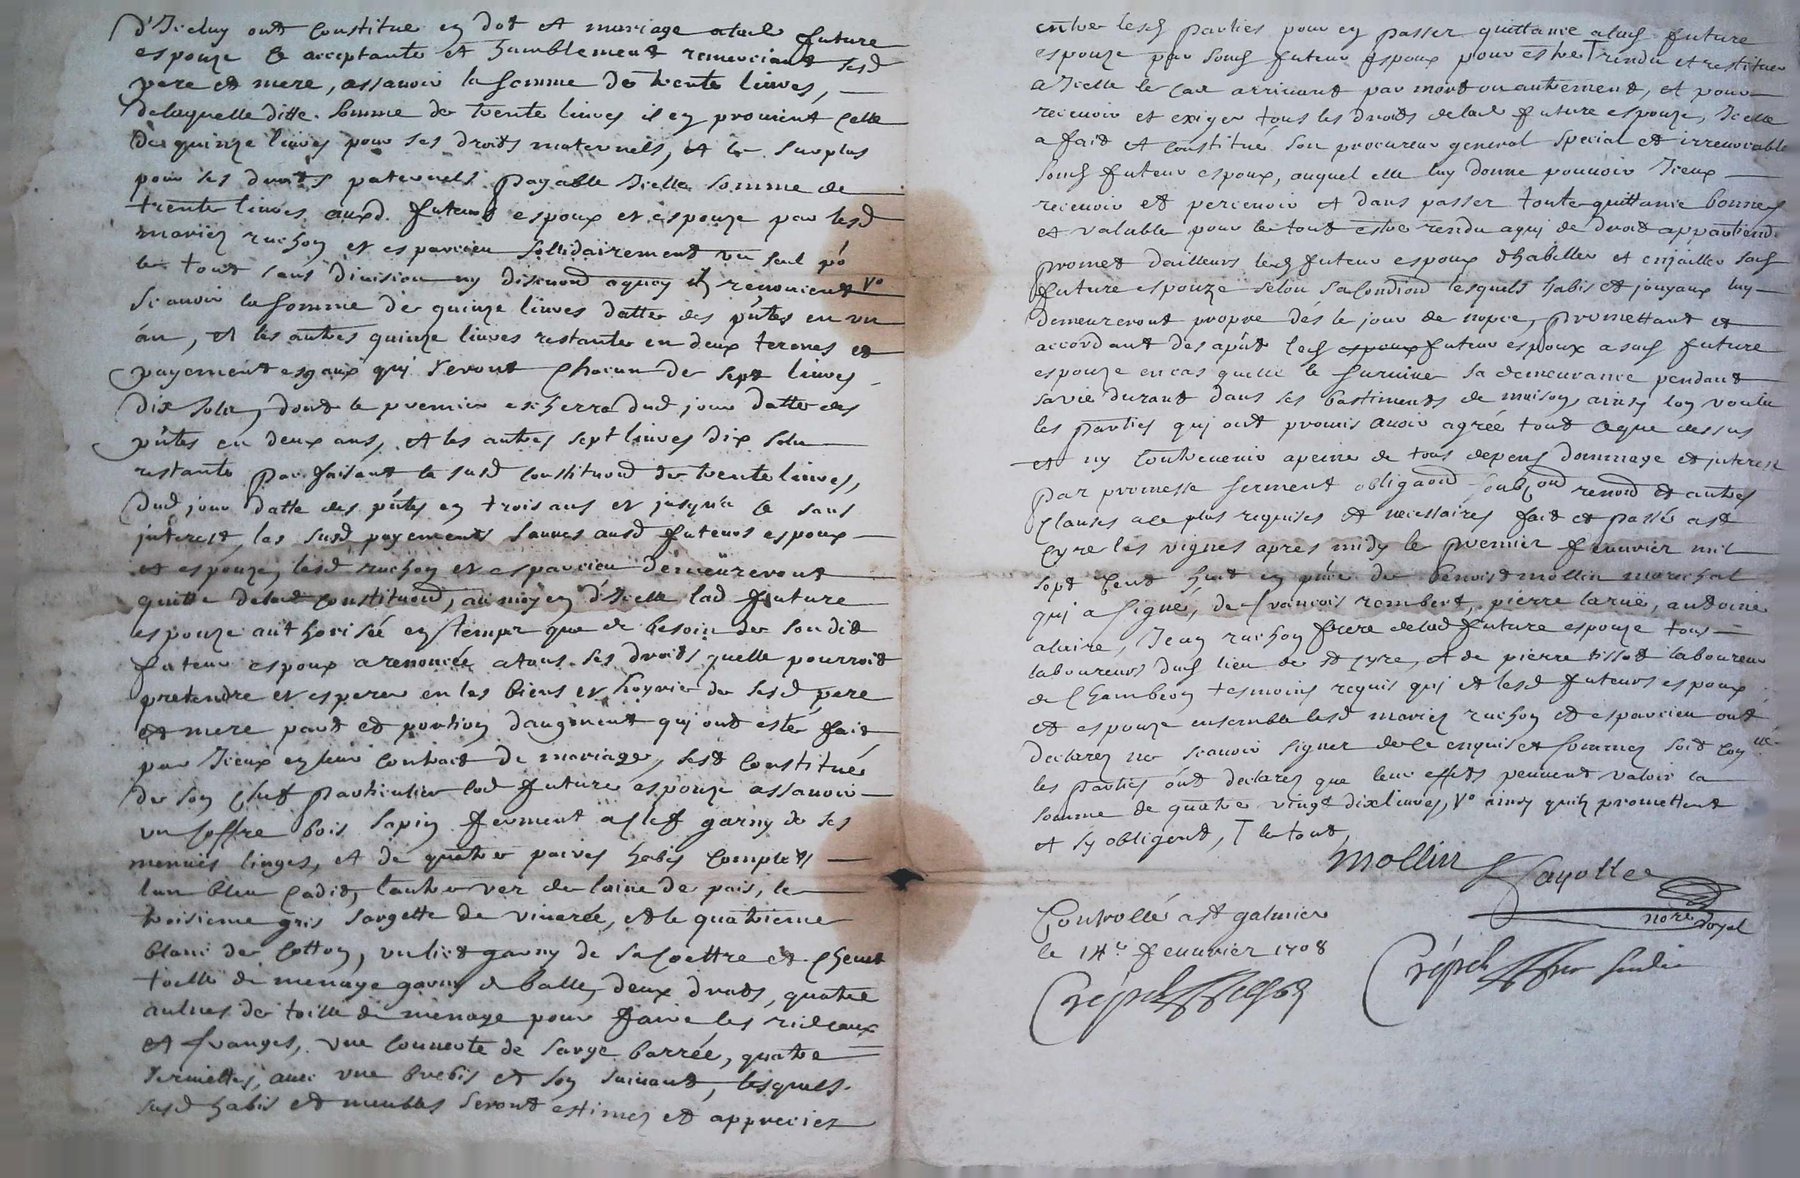 d'Iceluy ont constitue en dot et mariage alad future
espouze ce acceptante et humblement remerciant sesd
pere et mere, assavoir la somme de trente livres,
delaquelle ditte somme de trente livres il en provient celle
de quinze livres pour ses droits maternels, et le surplus
pour ses droits paternels payable Icelle somme de
trente livres auxd futeurs espoux et espouze par lesd
mariez ruchon et esparcieu sollidairement un seul po
le tout sans division ny discuond aquoy Ils renoncent Vo
scavoir la somme de quinze livres datte des pntes en un
an, et les autres quinze livres restante en deux termes et
payement esgaux qui seront chacun de sept livres
dix sols, dont le premier escherra dud jour datte des
pntes en deux ans, et les autres sept livres dix sols
restante parfaisant la susd constituond de trente livres,
dud jour datte des pntes en trois ans et jusqu'a ce sans
interest, les susd payements sauves ausd futeurs espoux
et espouze, lesd ruchon et esparcieu demeureront
quitte delad constituond, au moyen d'Icelle lad future
espouze authorisée en temps que de besoin de son dit
futeur espoux a renoncée atous ses droits quelle pourroit
pretendre et esperer en les biens et hoyrie de sesd pere
et mere part et portion daugment qui ont estée fait
par Iceux en leur contrait de mariage, sest constitué
de son chef particulier lad future espouze assavoir
un coffre bois sapin ferment a clef garny de ses
menues linges, et de quatre paires habis complets
lun bleu cadis, lautre ver de laine de pais, le
troisieme gris sargette de vivarée, et le quatrieme
blanc de cotton, un lict garny de sa coettre et chevet
toille de menage garny de balle, deux draps, quatre
aulnes de toille de menage pour faire les rideaux
et franges, une couverte de sarge barrée, quatre
serviettes, avec une brebis et son suivant, lesquels
susd habis et meubles seront estimez et appreciez
entre lesd parties pour en passer quittance alad future
espouze par sond futeur espoux pour estre T rendu et restituer
a Icelle le cas arrivant par mort ou autrement, et pour
recevoir et exiger tous les droits delad future espouze, Icelle
a fait et constitué son procureur general special et irrevocable
sond futeur espoux, auquel elle luy donne pouvoir Iceux
recevoir et percevoir et dans passer toute quittance bonne
et valable pour le tout estre rendu a qui de droit appartiendr
promet dailleurs led futeur espoux dhabiller et enjailler sad
future espouze selon sa conditiond lesquels habis et joyaux luy
demeureront propre dés le jour de nopce, promettant et
accordant des aput led espoux futeur espoux a sad future
espouze en cas quelle le survive sa demeurance pendant
sa vie durant dans ses bastiments de maison, ainsy lon voulu
les parties qui ont promis avoir agrée tout ceque dessus
et ny contrevenir a peine de tous depens dommage et interest
par promesse serment obligaond soubond renond et autres
clauses a ce plus requises et necessaires fait et passé a st
cyre les vignes apres midy le premier fevuvier mil
sept cent huit en pnce de benoist mollin marechal
qui a signé, de francois rombert, pierre larue, antoine
alaire, Jean ruchon frere delad future espouze tous
laboureurs dud lieu de st cyre, et de pierre tissot laboureur
de Chambeon tesmoins requis qui et lesd futeurs espoux
et espouze ensemble lesd mariez ruchon et esparcieu ont
declarez ne scavoir signer de ce enquis et sommez soit con lle
les parties ont declarez que leur effets peuvent valoir la
somme de quatre vingt dix livres, Vo ainsy quils promettent
et sy obligent, T le tout,
mollin Jayolle
nore Royal
Controllé a st galmier
le 14e fevuvier 1708